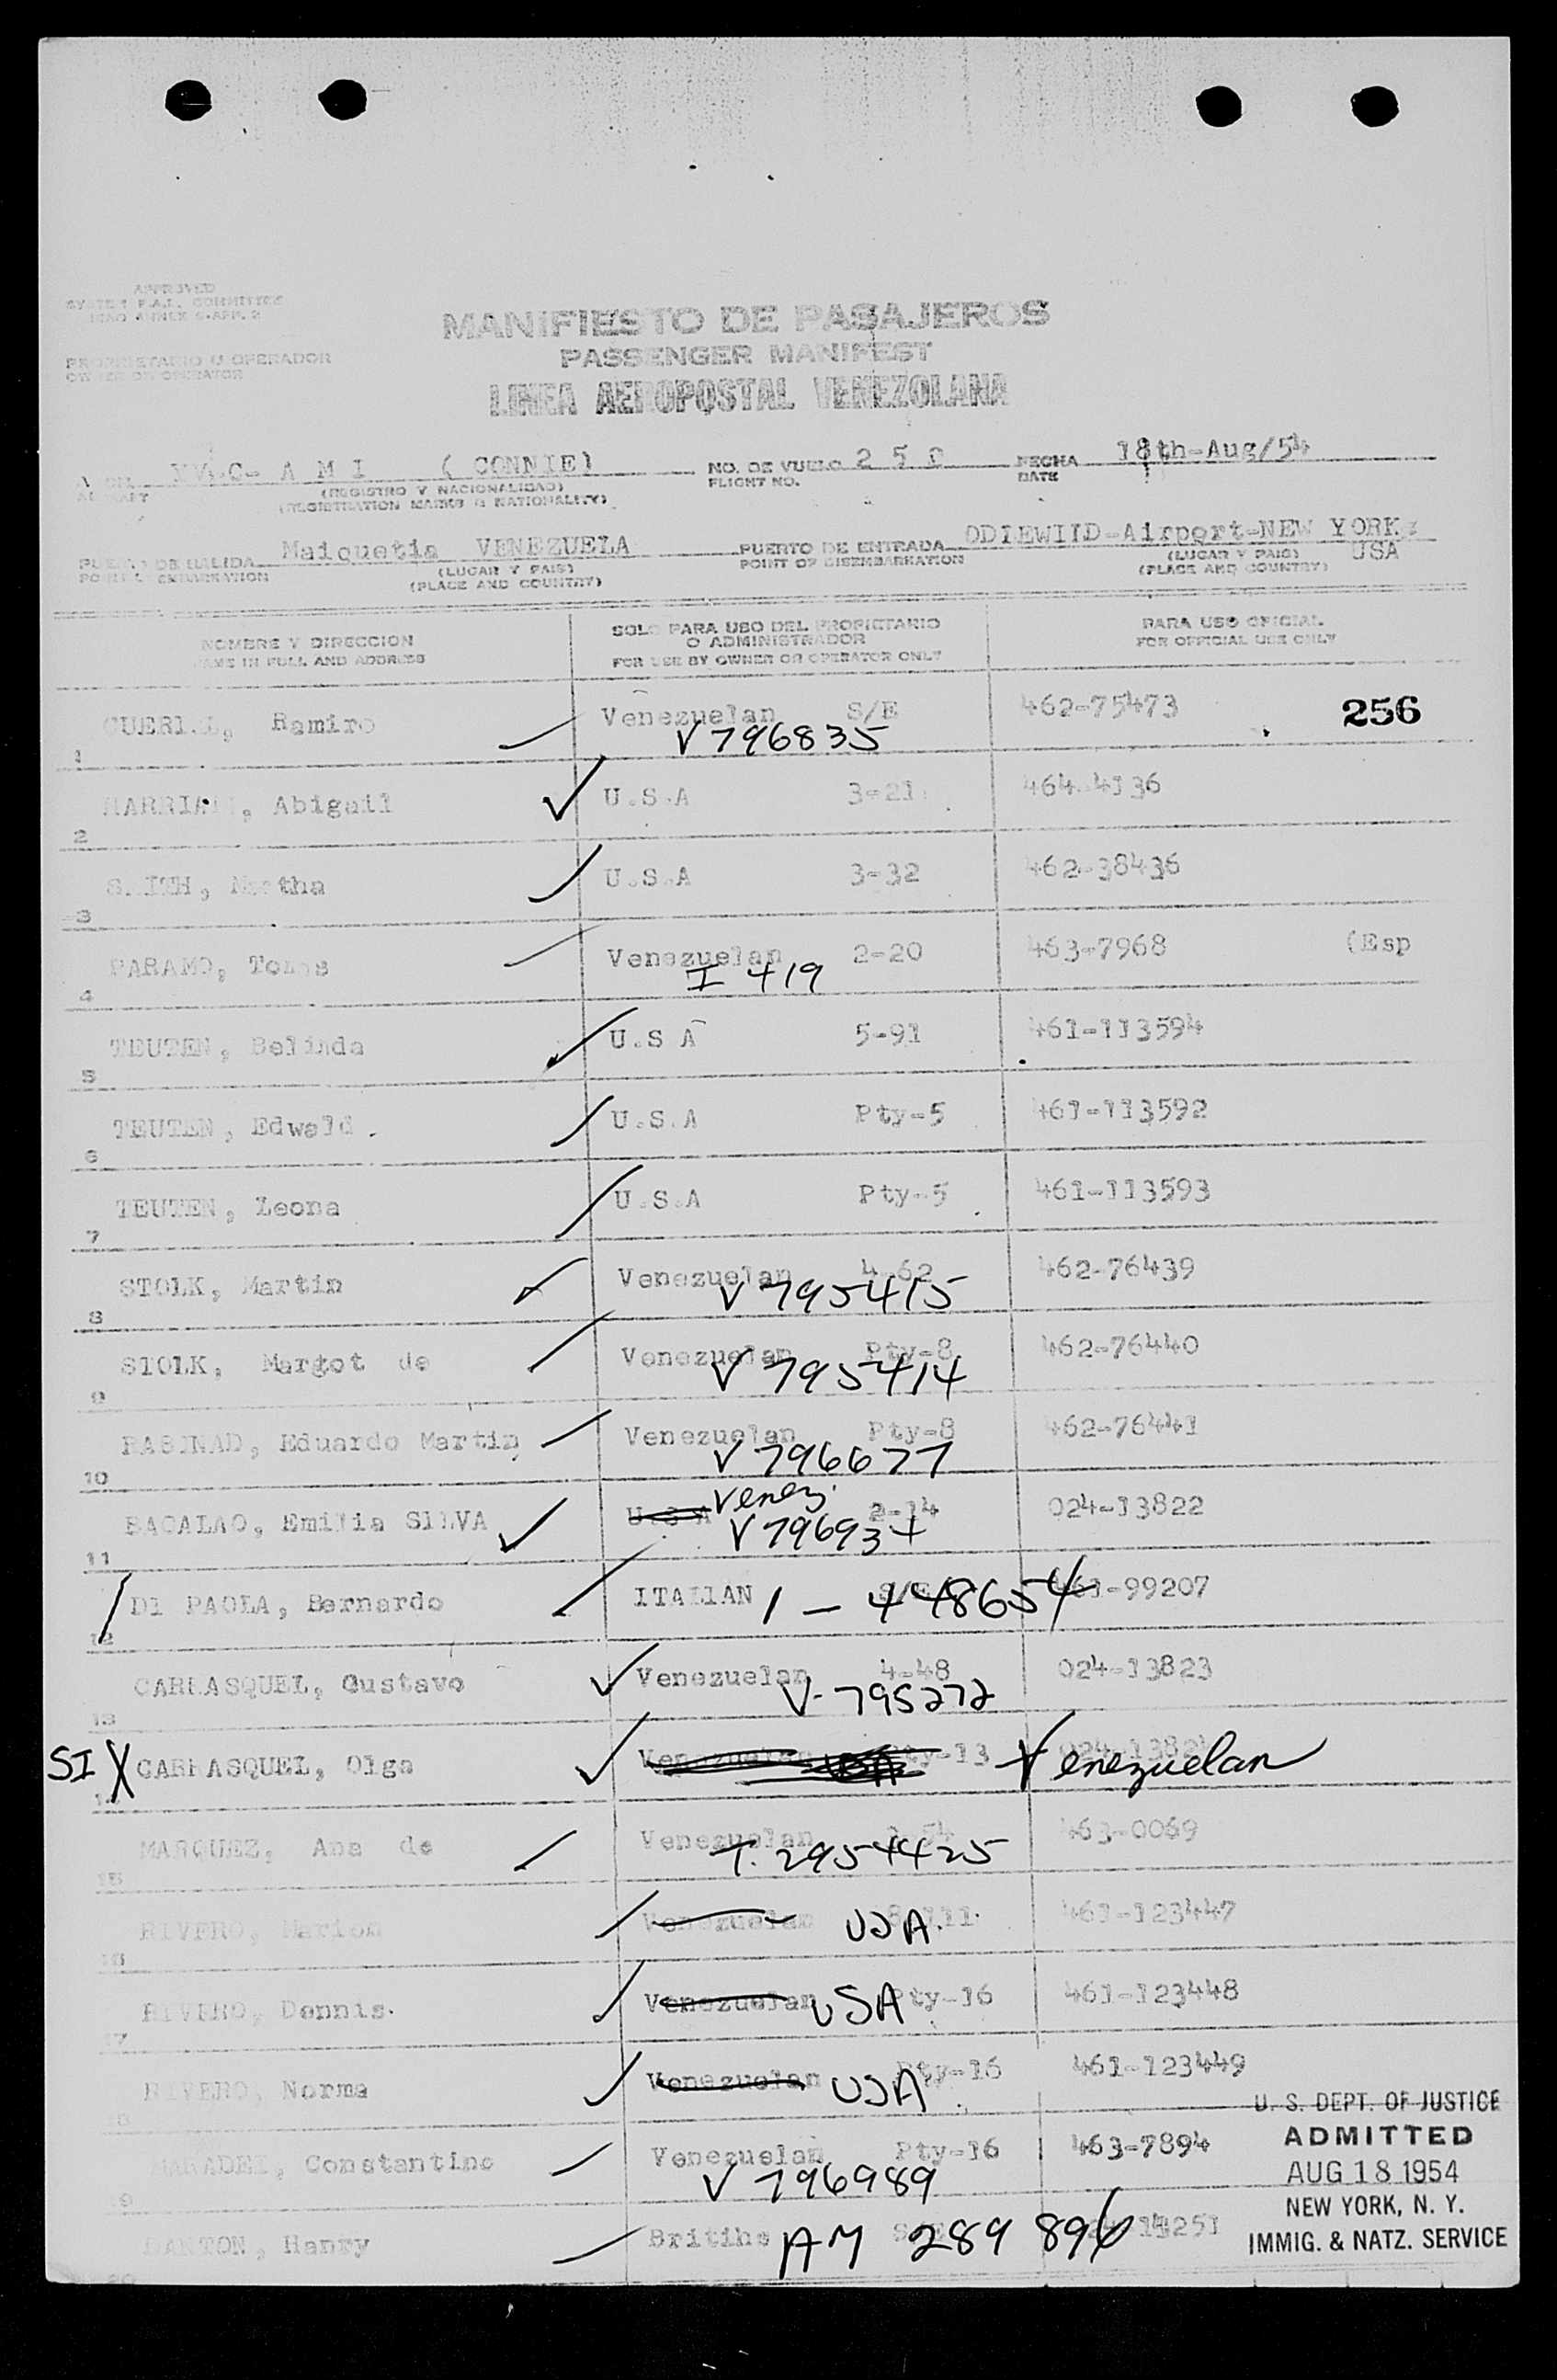 APPROVED
SYSTEM F.A.L. COMMITTEE
ICAO ANNEX 9-APN. 2
PROPRIETARIO U OPERADOR
OWNER OR OPERATOR
MANIFIESTO DE PASAJEROS
PASSENGER MANIFEST
LINEA AEROPOSTAL VENEZOLANA
YV-C- A M I ( CONNIE) NO. DE VUELO 2 5 0 FECHA 18th-Aug/54
FLIGHT NO. DATE
(REGISTRO Y NACIONALIDAD)
(REGISTRATION MARKS & NATIONALITY)
PUERTO DE SALIDA Maiquetia VENEZUELA PUERTO DE ENTRADA ODIEWIID-Airport-NEW YORK
POINT OF EMBARKATION (LUGAR Y PAIS) POINT OF DISEMBARKATION (LUGAR Y PAIS) USA
(PLACE AND COUNTRY) (PLACE AND COUNTRY)
NOMBRE Y DIRECCION SOLO PARA USO DEL PROPIETARIO PARA USO OFICIAL
NAME IN FULL AND ADDRESS O ADMINISTRADOR FOR OFFICIAL USE ONLY
FOR USE BY OWNER OR OPERATOR ONLY
Ramiro Venezuelan S/E 462-75473 256
1 V 796835
Abigail U.S.A 3-21 464-4136
2
S ITH, Martha U.S.A 3-32 462-38436
3
PARAMO, Tomas Venezuelan 2-20 463-7968 (Esp
4 I 419
TEUTEN, Belinda U.S A 5-91 461-113594
5
TEUTEN, Edwald. U.S.A Pty-5 461-113592
6
TEUTEN, Leona U.S.A Pty-5 461-113593
7
STOLK, Martin Venezuelan 4-62 462-76439
8 V 795415
STOLK, Margot de Venezuelan Pty-8 462-76440
9 V 795414
RASINAD, Eduardo Martin Venezuelan Pty-8 462-76441
10 V 796677
BACALAO, Emilia SILVA U.S A Venez. 2-14 024-13822
11 V 79693+
DI PAOLA, Bernardo ITALIAN I - 448654 -99207
12
CARRASQUEL, Gustavo Venezuelan 4-48 024-13823
13 V- 795272
SI X CARRASQUEL, Olga Venezuelan USA Pty-13 Venezuelan
14
MARQUEZ, Ana de Venezuelan 463-0069
15 T. 2954425
RIVERO, Marion Venezuelan USA. 461-123447
16
RIVERO, Dennis. Venezuelan USA Pty-16 461-123448
17
RIVERO, Norma Venezuelan USA Pty-16 461-123449
18
Constantino Venezuelan Pty-16 463-7894
19 V 796989
Hanry Britihs AM 289 896
20
U. S. DEPT. OF JUSTICE
ADMITTED
AUG 18 1954
NEW YORK, N. Y.
IMMIG. & NATZ. SERVICE